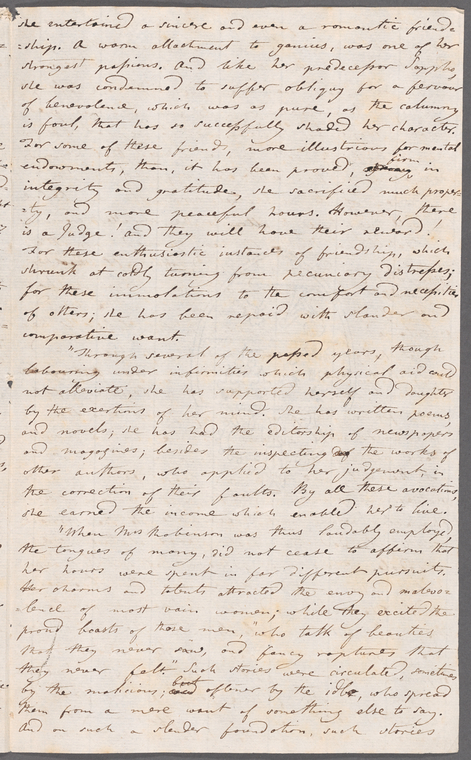 she entertained a sincere and even a romantic friend=
=ship. A warm attachment to genius, was one of her
strongest passions. And like her predecessor Sappho,
she was condemned to suffer obloquy for a fervour
of benevolence, which was as pure, as the calumny
is foul, that has so successfully shaded her character.
For some of these friends, more illustrious for mental
endowments, than, it has been proved, firm in
integrity and gratitude, she sacrificed much proper=
=ty, and more peaceful hours. However, there
is a Judge! and they will have their reward.
For these enthusiastic instances of friendship, which
shrunk at coldly turning from pecuniary distresses;
for these immolations to the comfort and necessities
of others; she has been repaid with slander and
comparative want.
"Through several of the passed years, though
labouring under infirmities which physical aid could
not alleviate, she has supported herself and daughter
by the exertions of her mind. She has written poems,
and novels; she has had the editorship of newspapers
and magazines; besides the inspecting of the works of
other authors, who applied to her judgement in
the correction of their faults. By all these avocations,
she earned the income which enabled her to live.
"When Mrs Robinson was thus laudably employed,
the tongues of many, did not cease to affirm that
her hours were spent in far different pursuits.
Her charms and talents attracted the envy and malevo=
=lence of most vain women; while they excited the
proud boasts of those men, "who talk of beauties
that they never saw, and fancy raptures that
they never felt." Such stories were circulated, sometimes
by the malicious; but oftener by the idle, who spread
them from a mere want of something else to say.
And on such a slender foundation, such stories